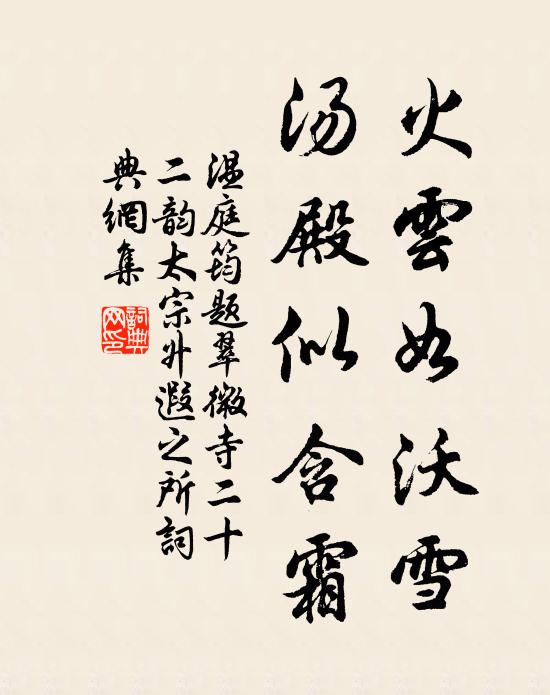 火雲如沃雪
汤殿似含霜
温庭筠題翠微寺二十
二韵太宗升遐之所詞
典網集
詞典网印